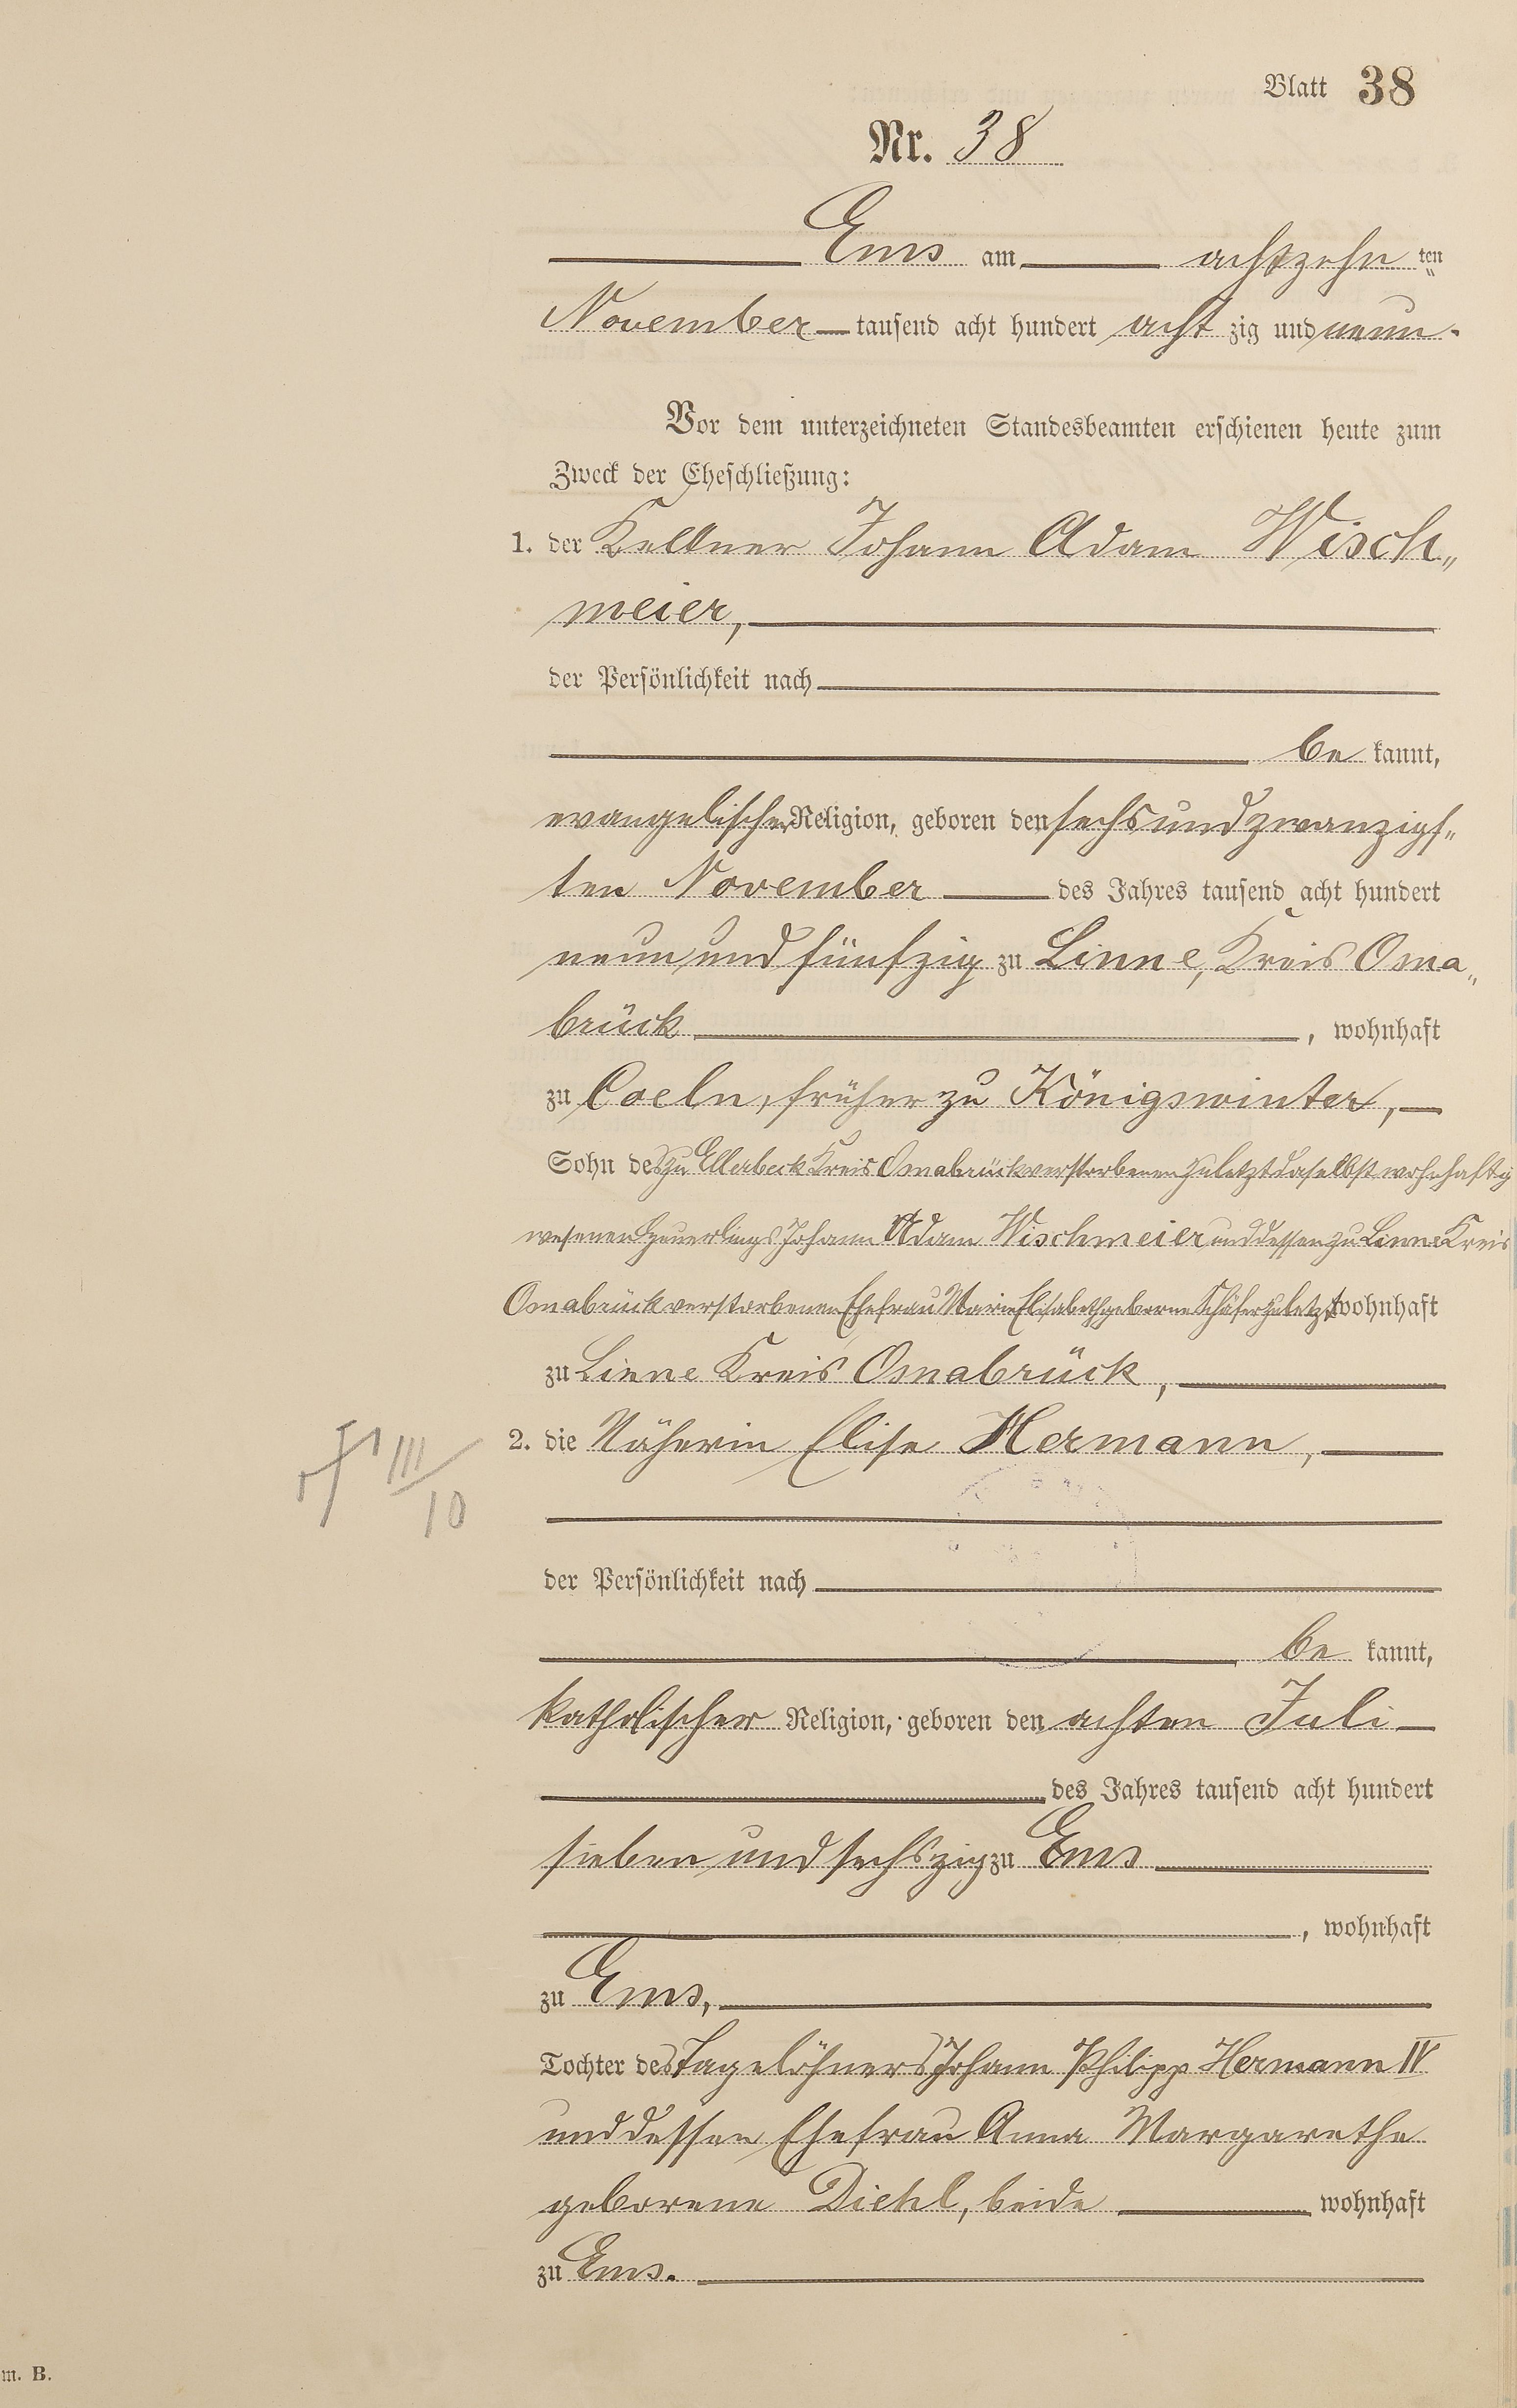 Blatt 38
Nr. 38
Ems am achtzehn ten
November tausend acht hundert acht zig und neun.
Vor dem unterzeichneten Standesbeamten erschienen heute zum
Zweck der Eheschließung:
1. der Kellner Johann Adam Wisch„
meier,
der Persönlichkeit nach
be kannt,
evangelischer Religion, geboren den sechsundzwanzigs„
ten November des Jahres tausend acht hundert
neun und fünfzig zu Linne, Kreis Osna„
brück, wohnhaft
zu Coeln, früher zu Königswinter,
Sohn des zu Ellerbeck Kreis Osnabrück verstorbenen zuletzt daselbst wohnhaft ge
wesenen Heuerlings Johann Adam Wischmeier und dessen zu Linne Kreis
Osnabrück verstorbenen Ehefrau Marie Elisabeth geborne Schäfer zuletzt wohnhaft
zu Linne Kreis Osnabrück,
2. die Näherin Elise Hermann,
III
10
der Persönlichkeit nach
be kannt,
katholischer Religion, geboren den achten Juli
des Jahres tausend acht hundert
sieben und sechszig zu Ems
, wohnhaft
zu Ems,
Tochter des Tagelöhners Johann Philipp Hermann IV
und dessen Ehefrau Anna Margarethe
geborene Diehl, beide wohnhaft
zu Ems.
m. B.